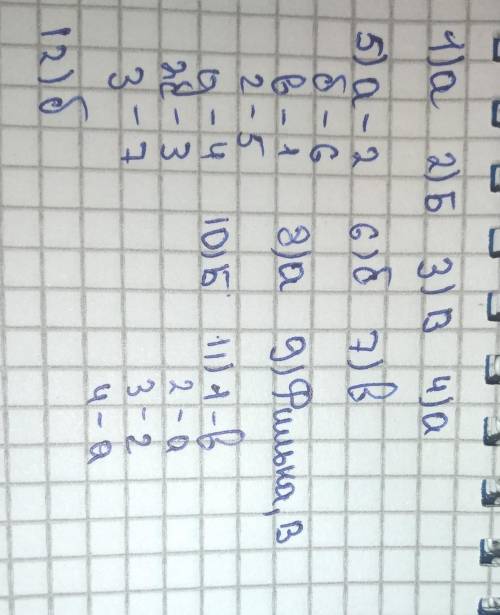 1) а 2) Б 3) В 4) а
5) а - 2 6) б 7) в
б - 6
в - 1 8) а 9) Филька, в
2 - 5
д - 4 10) Б 11) 1 - в
- 3 2 - а
3 - 7 3 - 2
4 - а
12) б